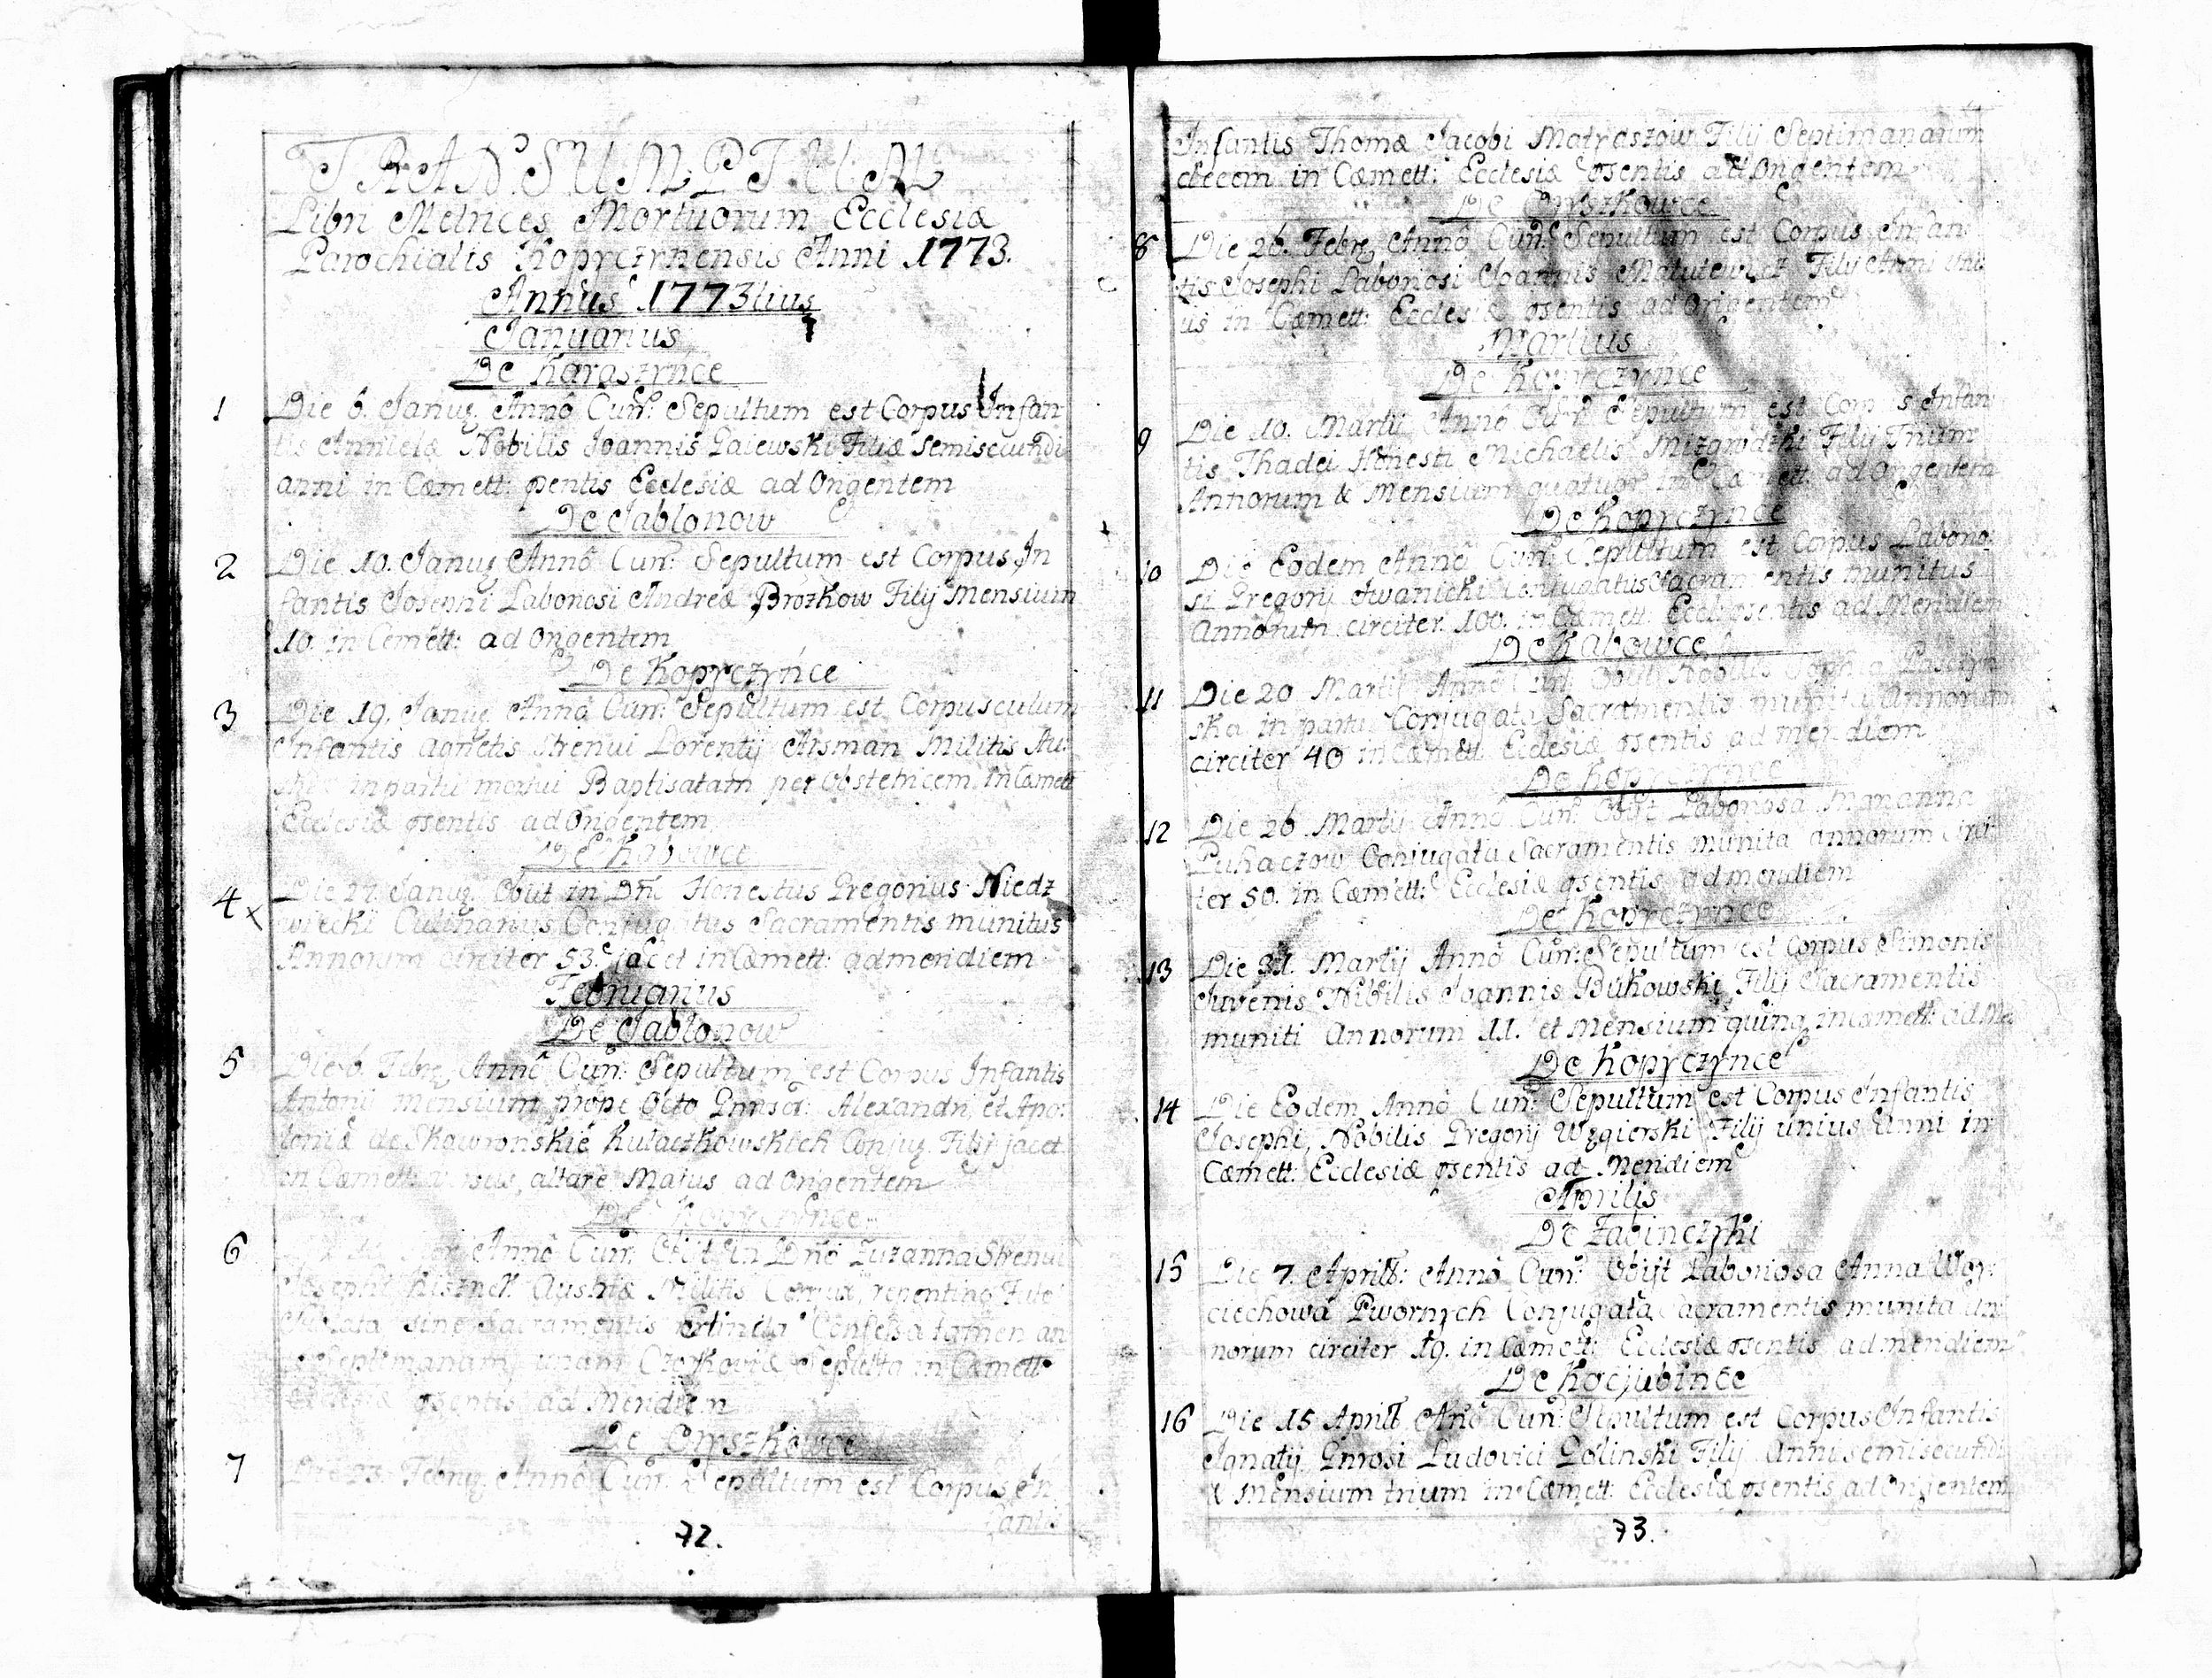 TRANSUMPTUM
Libri Metrices Mortuorum Ecclesiæ
Parochialis Kopyczynensis Anni 1773.
Annus 1773tius
Januarius
De Karaszyńce
1 Die 6. Januȝ Annô Curr: Sepultum est Corpus Infan
tis Annielæ Nobilis Joannis Gaiewski Filiæ Semisecundi
anni in Cæmett: pñtis Ecclesiæ ad Origentem
De Jabłonow
2 Die 10. Januȝ Annô Curr: Sepultum est Corpus In
fantis Josephi Laboriosi Andreæ Brozkow Filij Mensium
10. in Cemett: ad Origentem
De Kopyczyńce
3 Die 19. Januȝ Annô Curr: Sepultum est Corpusculum
Infantis Agnetis Strenui Lorentij Arsman Militis Au:
in partu mortui Baptisatam per obstetricem in Cæmett
Ecclesiæ psentis ad Origentem
De Kobowce
4 Die 27. Januȝ Obiit in Dñô Honestus Gregorius Niedz
wiecki Conjugatus Sacramentis munitus
Annorum circiter 53. jacet in Cæmett: ad meridiem
Februarius
De Jabłonow
5 Die 6. Febrȝ Annô Curr: Sepultum est Corpus Infantis
Antonij mensium prope Octo Gnrosor: Alexandri et Apo:
loniæ de Skowronskie Kulaczkowskich Conjuȝ Filij jacet
in Cæmett: altare Maius ad Origentem
De Kopyczynce
6 Annô Curr: Obiit in Dñô Zuzanna Strenui
Josephi Austriæ Militis repentino
sine Sacramentis Extincta Confessa tamen an
te septimanam unam Sepulta in Cæmett:
Ecclesiæ psentis ad Meridiem
De Oryszkowce
7 Die 23. Februȝ Annô Curr: Sepultum est Corpus In
fantis
72.
Infantis Thomæ Jacobi Matraszow Filij Septimanarum
decem in Cæmett: Ecclesiæ psentis ad Origentem
De Oryszkowce
8 Die 26. Febrȝ Annô Curr: Sepultum est Corpus Infan
tis Josephi Laboriosi Joannis Matutewicz Filij Anni uni
us in Cæmett: Ecclesiæ psentis ad Origentem
Martius
De Kopyczynce
9 Die 10. Martij Annô Curr: Sepultum est Corpus Infan
tis Thadei Honesti Michaelis Mizgrodzki Filij Trium
Annorum & Mensium quatuor in Cæmett: ad Origentem
De Kopyczynce
10 Die Eodem Annô Curr: Sepultum est Corpus Laborio:
si Gregorij Iwanicki Conjugatus Sacramentis munitus
Annorum circiter 100. in Cæmett: Eccl: psentis ad Meridiem
De Kabowce
11 Die 20 Martij Annô Curr: Obiit Nobilis Sophia
ska in partu Conjugata Sacramentis munita Annorum
circiter 40 in Cæmett: Ecclesiæ psentis ad meridiem
De Kopyczynce
12 Die 26 Martij Annô Curr: Obijt Laboriosa Marianna
Puhaczow Conjugata Sacramentis munita annorum circi
ter 50. in Cæmett: Ecclesiæ psentis ad meridiem
De Kopyczynce
13 Die 31. Martij Annô Curr: Sepultum est Corpus Simonis
Juvenis Nobilis Joannis Bukowski Filij Sacramentis
muniti Annorum 11. et Mensium quinq in Cæmett: ad Me
De Kopyczynce
14 Die Eodem Annô Curr: Sepultum est Corpus Infantis
Josephi Nobilis Gregorij Węgierski Filij unius Anni in
Cæmett: Ecclesiæ psentis ad Meridiem
Aprilis
De Zabinczyki
15 Die 7. Aprill: Annô Curr: Obijt Laboriosa Anna Woy:
ciechowa Dwornych Conjugata Sacramentis munita An
norum circiter 19. in Cæmett: Ecclesiæ psentis ad meridiem
De Kocjubince
16 Die 15 Aprill: Anô Curr: Sepultum est Corpus Infantis
Ignatij Gnrosi Ludovici Golinski Filij Anni semisecundi
& Mensium trium in Cæmett: Ecclesiæ psentis ad Origentem
73.